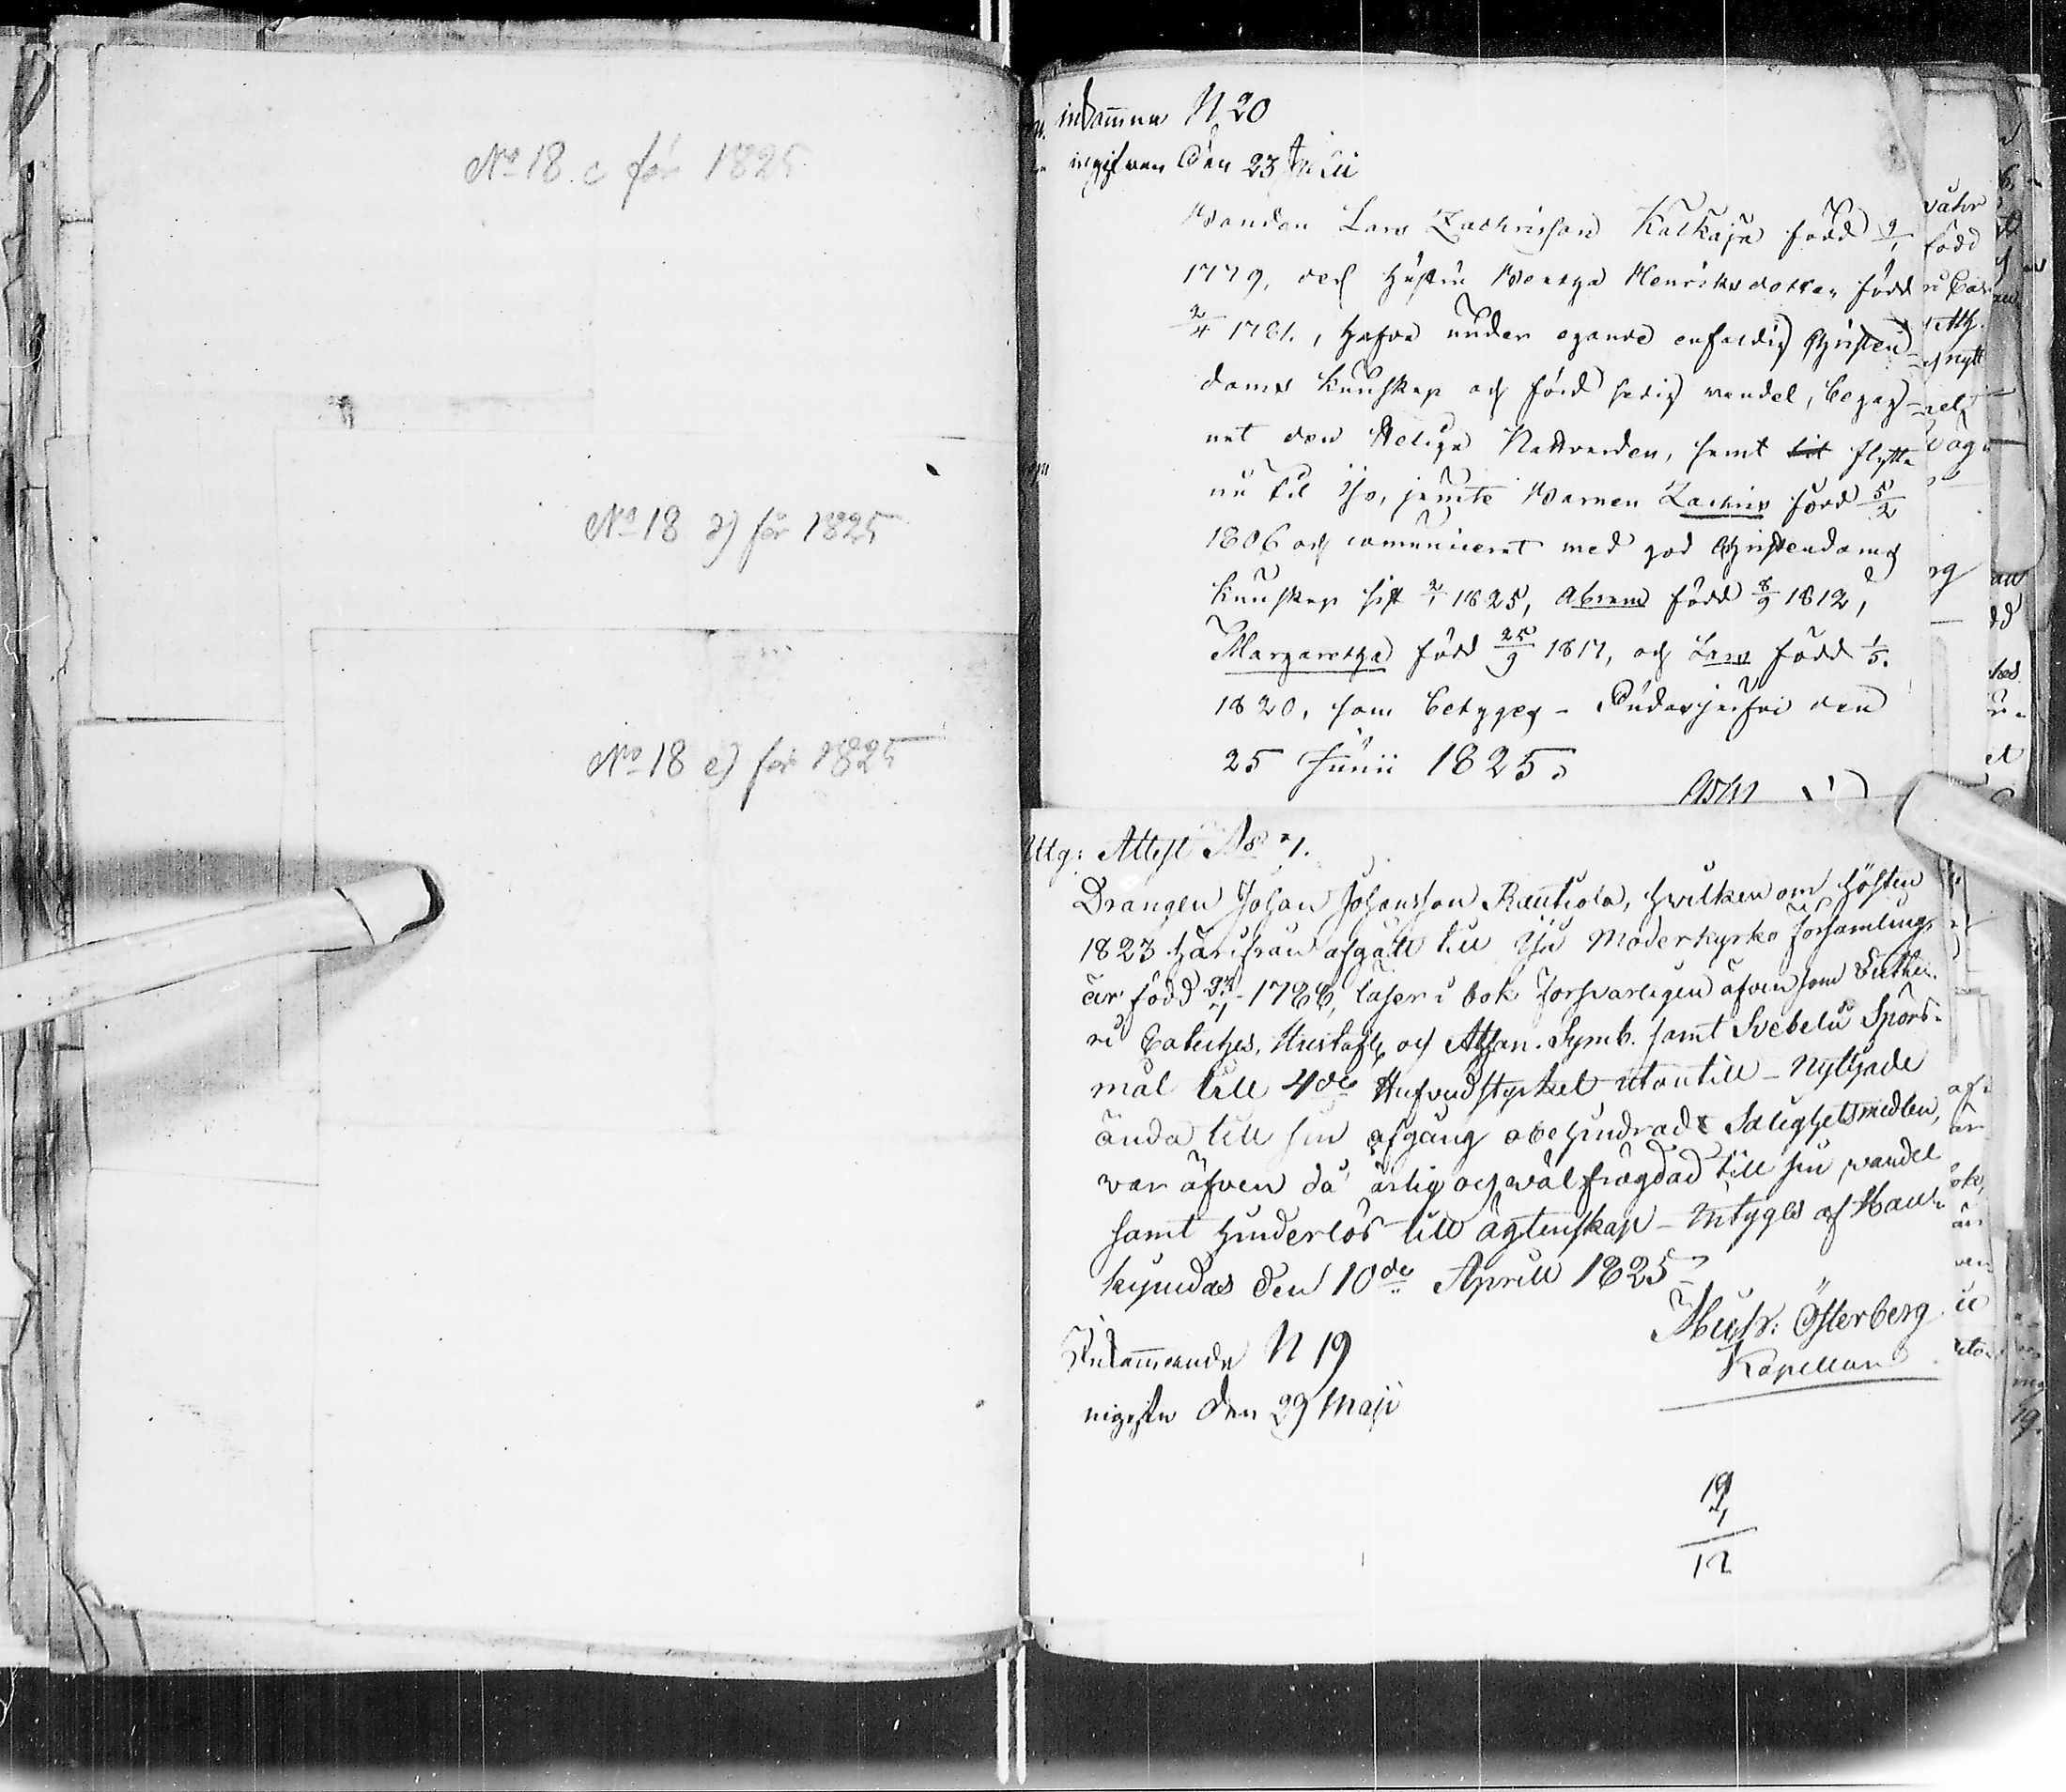 No 18 c för 1825
No 18 d) för 1825
No 18 e) för 1825
inkomna N 20
ingifven den 23
Bonden Lars Zachrisson Kalkaja född 9/1
1779, och Hustru Bertha Henriksdotter, född
2/4 1781, hafva under egande enfaldig Christen-
doms kunskap och förd sedig wandel, begag-
nat den Heliga Nattvarden, samt flytta
nu til Ijo, jemte Barnen Zachris född 5/2
1806 och communicerat med god Christendoms
kunskap sist 2/1 1825, Abram född 8/9 1812,
Margaretha född 25/9 1817, och Lars född 1/5
1820, som betyges - Pudasjerfvi den
25 Junii 1825.
Utg: Attest No 7.
Drängen Johan Johansson Rautiola, hvilken om hösten
1823 härifrån afgått till Ijo Moderkyrko församling,
är född 1788, läser i bok försvarligen äfven som Luthe-
ri Cateches, Hustafl. och Athan. Symb. samt Svebelii Spörs-
mål till 4de Hufvudstycket utantill - Nyttjade
ända till sin afgång obehindradt Salighetsmedlen,
var äfven då ärlig och välfrägdad till sin vandel
samt hinderlös till ägtenskap - Intygas af Hau-
kipudas den 10de Aprill 1825
Österberg
Kapellan
Inkommande N 19
ingifven den 29 Maji
19
12